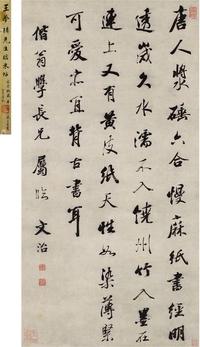 唐人漿硾六合慢麻紙書經明
透歲久水濡不入饒州竹入墨在
連上又有黃皮紙天性如染薄緊
可愛亦宜背古書耳
偕翁學長兄屬臨 文治